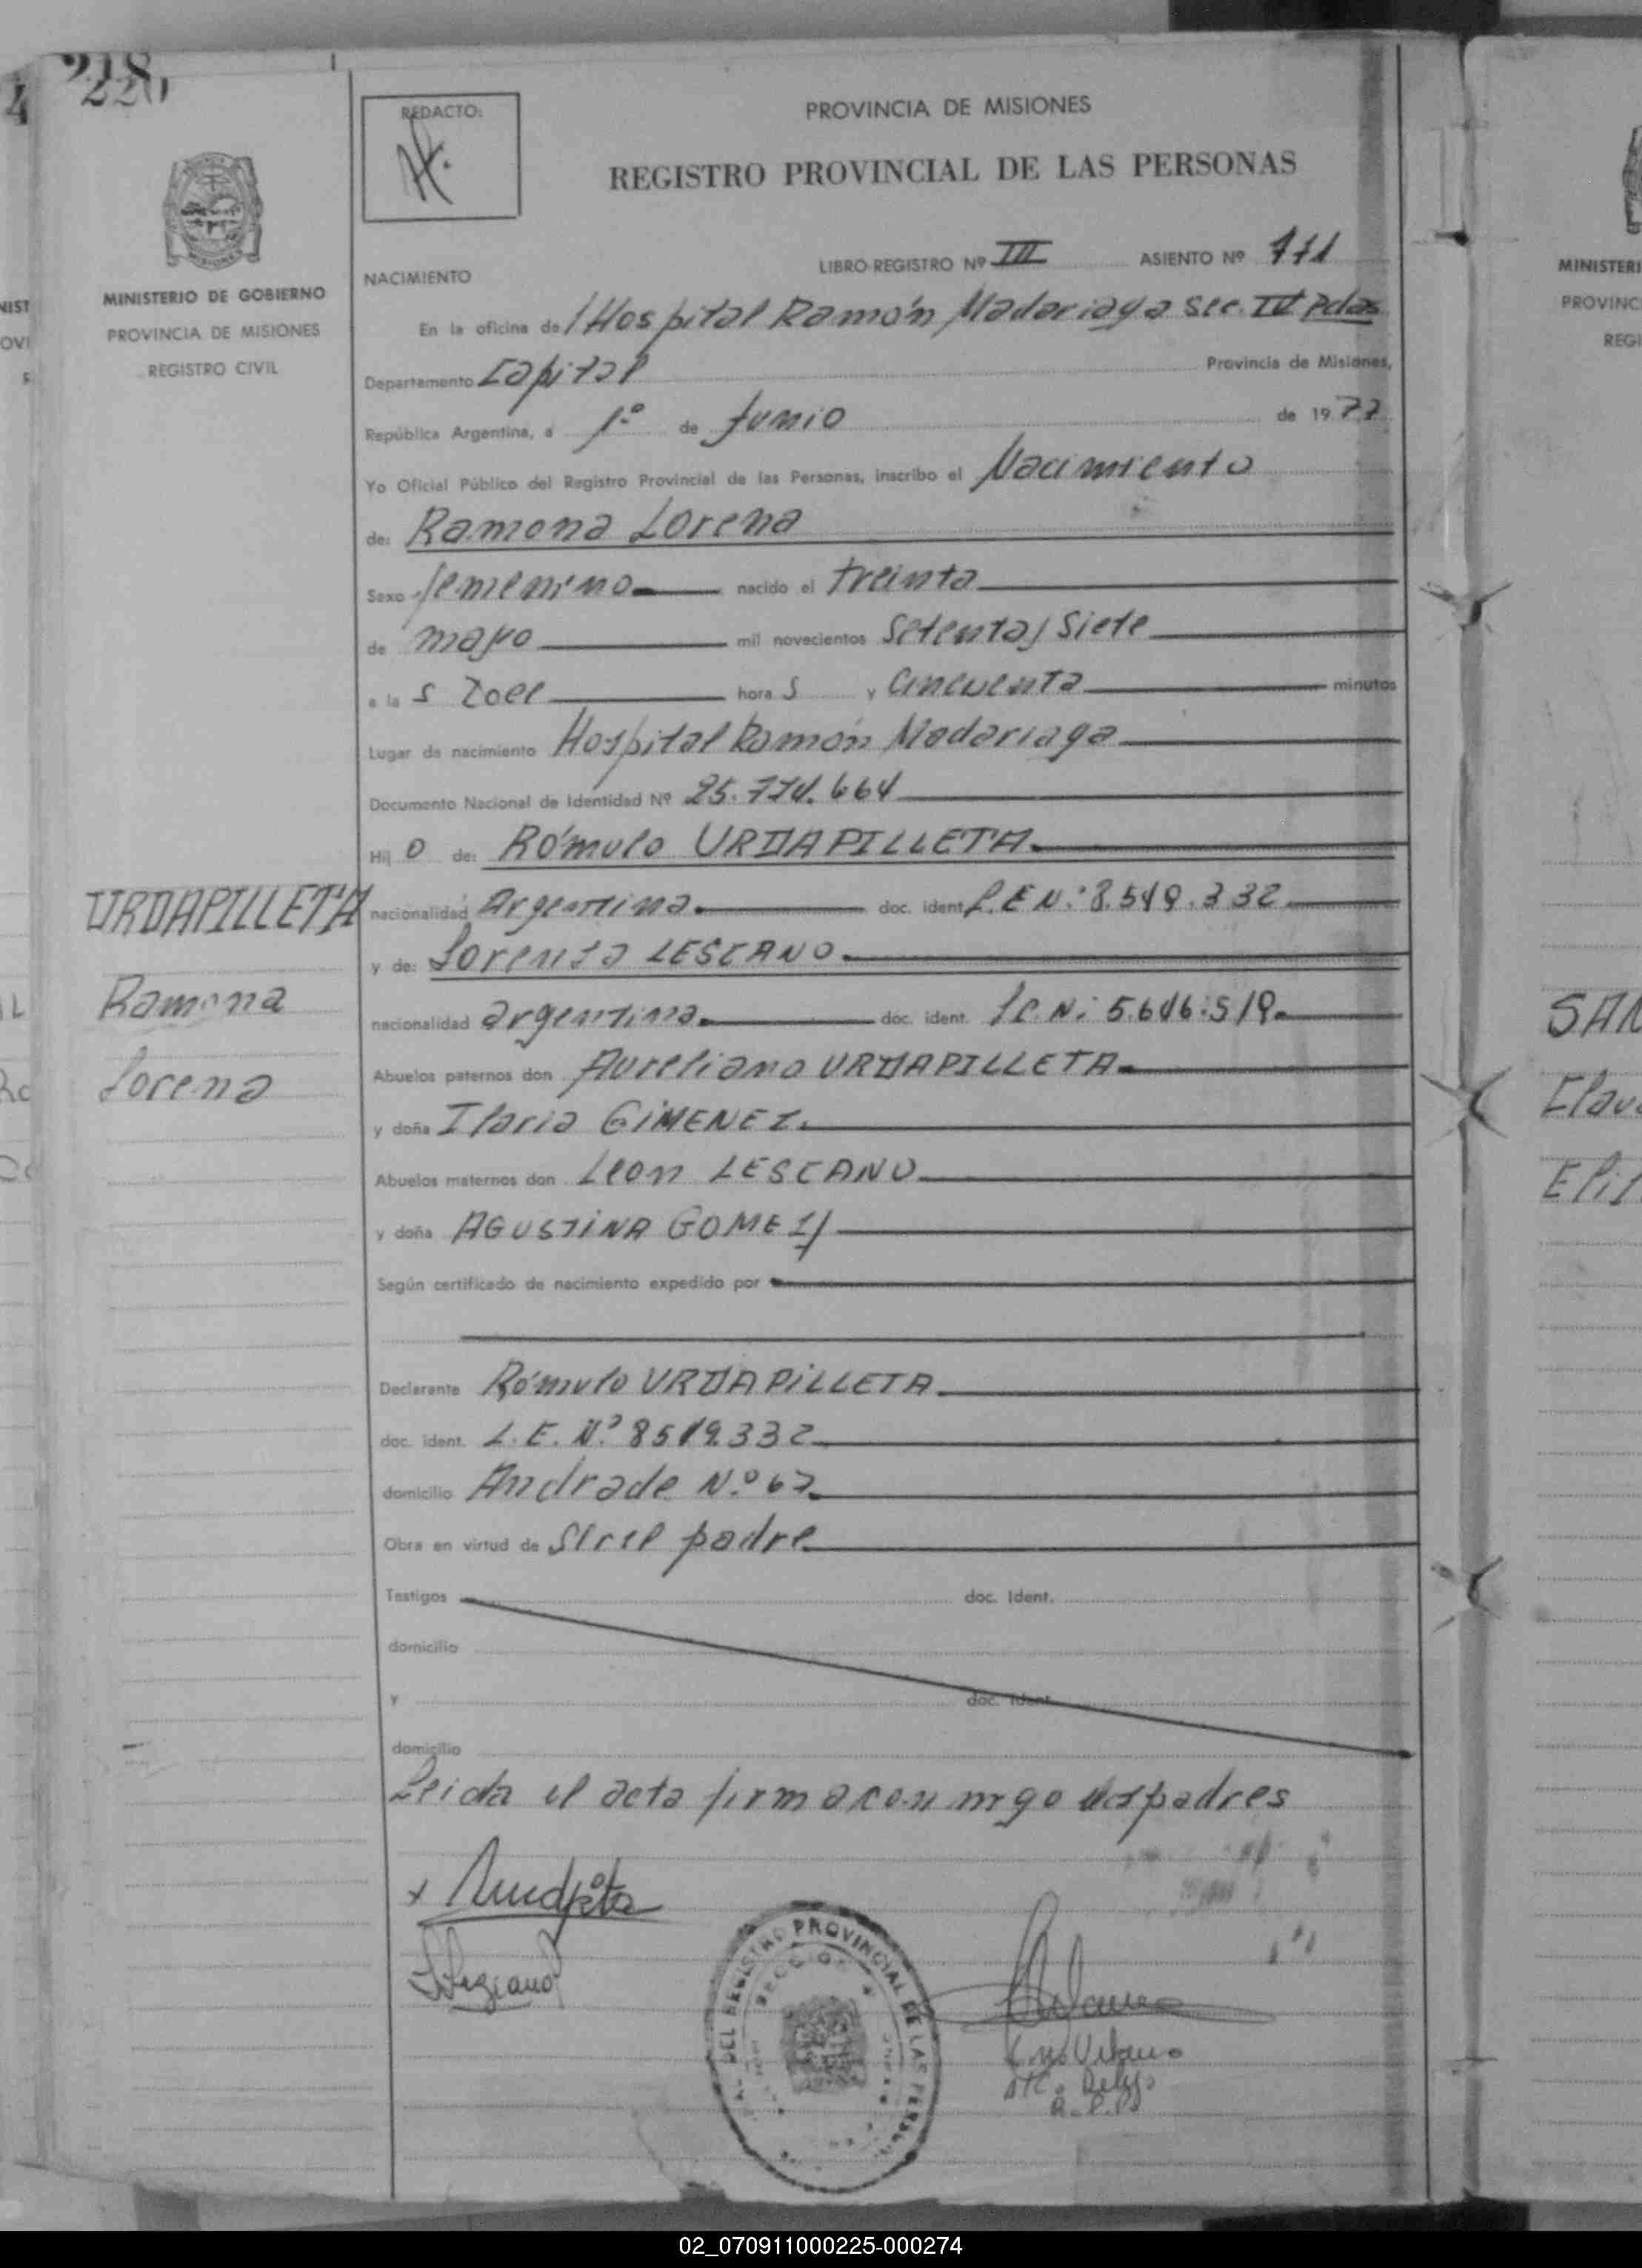 218
220
REDACTO:
PROVINCIA DE MISIONES
REGISTRO PROVINCIAL DE LAS PERSONAS
MINISTERIO DE GOBIERNO
PROVINCIA DE MISIONES
REGISTRO CIVIL
LIBRO-REGISTRO Nº III ASIENTO Nº 771
NACIMIENTO
En la oficina de l Hospital Ramón Madariaga Sec. IV Pdas
Departamento Capital Provincia de Misiones,
República Argentina, a 1º de Junio de 1977
Yo Oficial Público del Registro Provincial de las Personas, inscribo el Nacimiento
de: Ramona Lorena
Sexo femenino nacido el treinta
de mayo mil novecientos Setenta y Siete
a la s doce hora s y cincuenta minutos
Lugar de nacimiento Hospital Ramón Madariaga
Documento Nacional de Identidad Nº 25.774.664
Hij o de: Rómulo URDAPILLETA
nacionalidad Argentina doc. ident. L.E Nº 8.549.332
y de: Lorenza LESCANO
nacionalidad argentina doc. ident. LC. N: 5.646.519
Abuelos paternos don Aureliano URDAPILLETA
y doña Ilaria GIMENEZ
Abuelos maternos don Leon LESCANO
y doña AGUSTINA GOMEZ
Según certificado de nacimiento expedido por
Declarante Rómulo URDAPILLETA
doc. ident. L.E. Nº 8549.332
domicilio Andrade N.º 67
Obra en virtud de Ser el padre
Testigos doc. Ident.
domicilio
y doc. Ident.
domicilio
Leida el acta firma con migo los padres
URDAPILLETA
Ramona
Lorena
DEL REGISTRO PROVINCIAL DE LAS PERSON
SECCION
MINISTERI
PROVINC
REGI
SAN
02_070911000225-000274